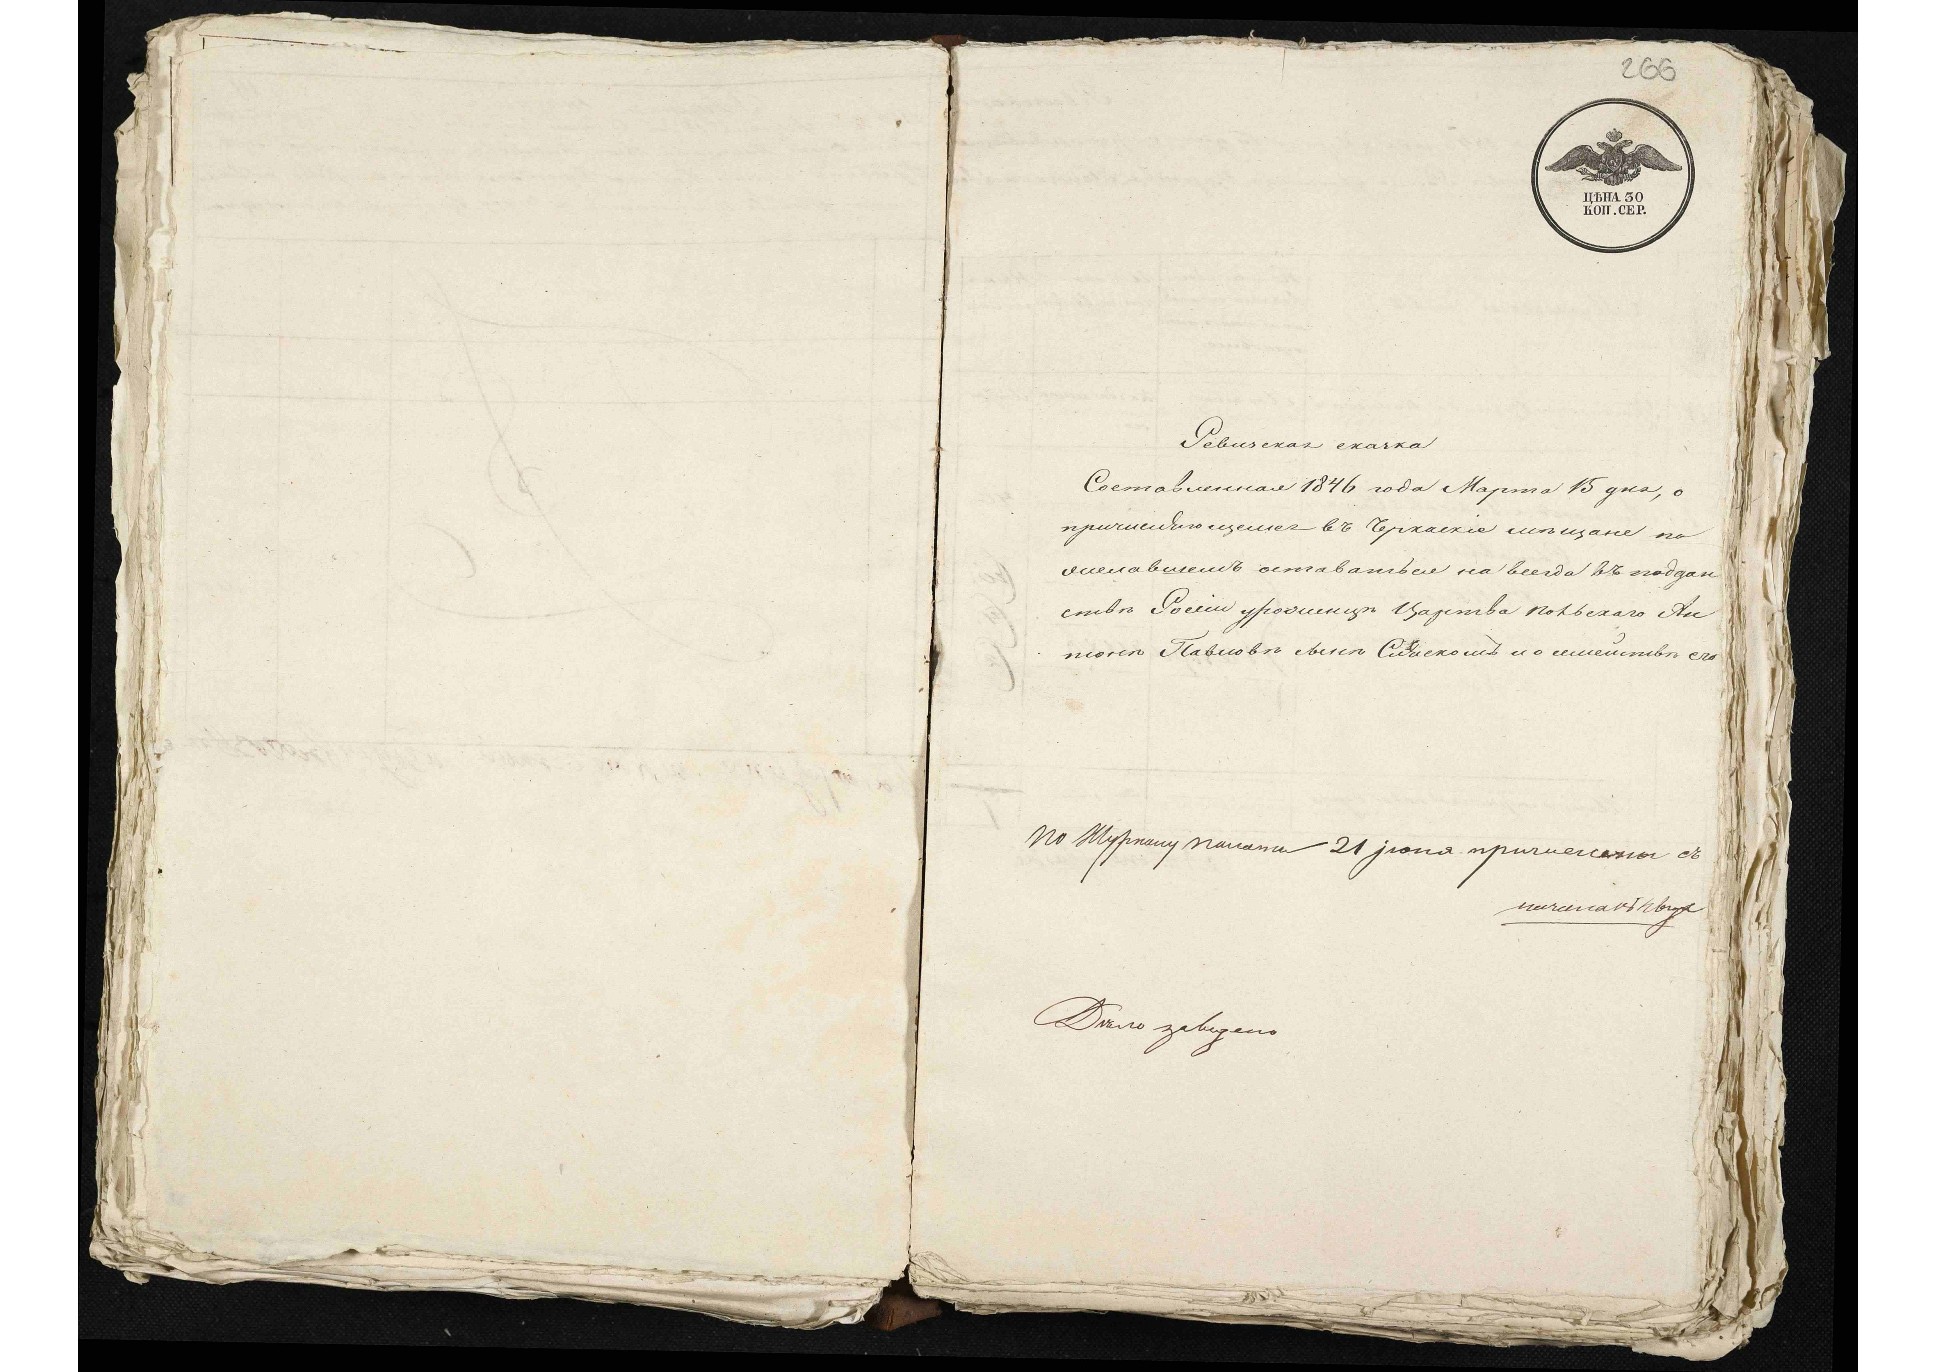 266
ЦѢНА 30
КОП. СЕР.
Ревизская скачка
Составленная 1846 года Марта 15 дня, о
причисляющемся въ Черкаскіе мѣщане по
желавшемъ оставаться на всегда въ поддан
ствѣ Росіи уроженцѣ Царства Польскаго Ан
тонѣ Павловѣ сынѣ и о семействѣ его
По Журналу палаты 21 Іюня причислены съ
начала
Дѣло заведено